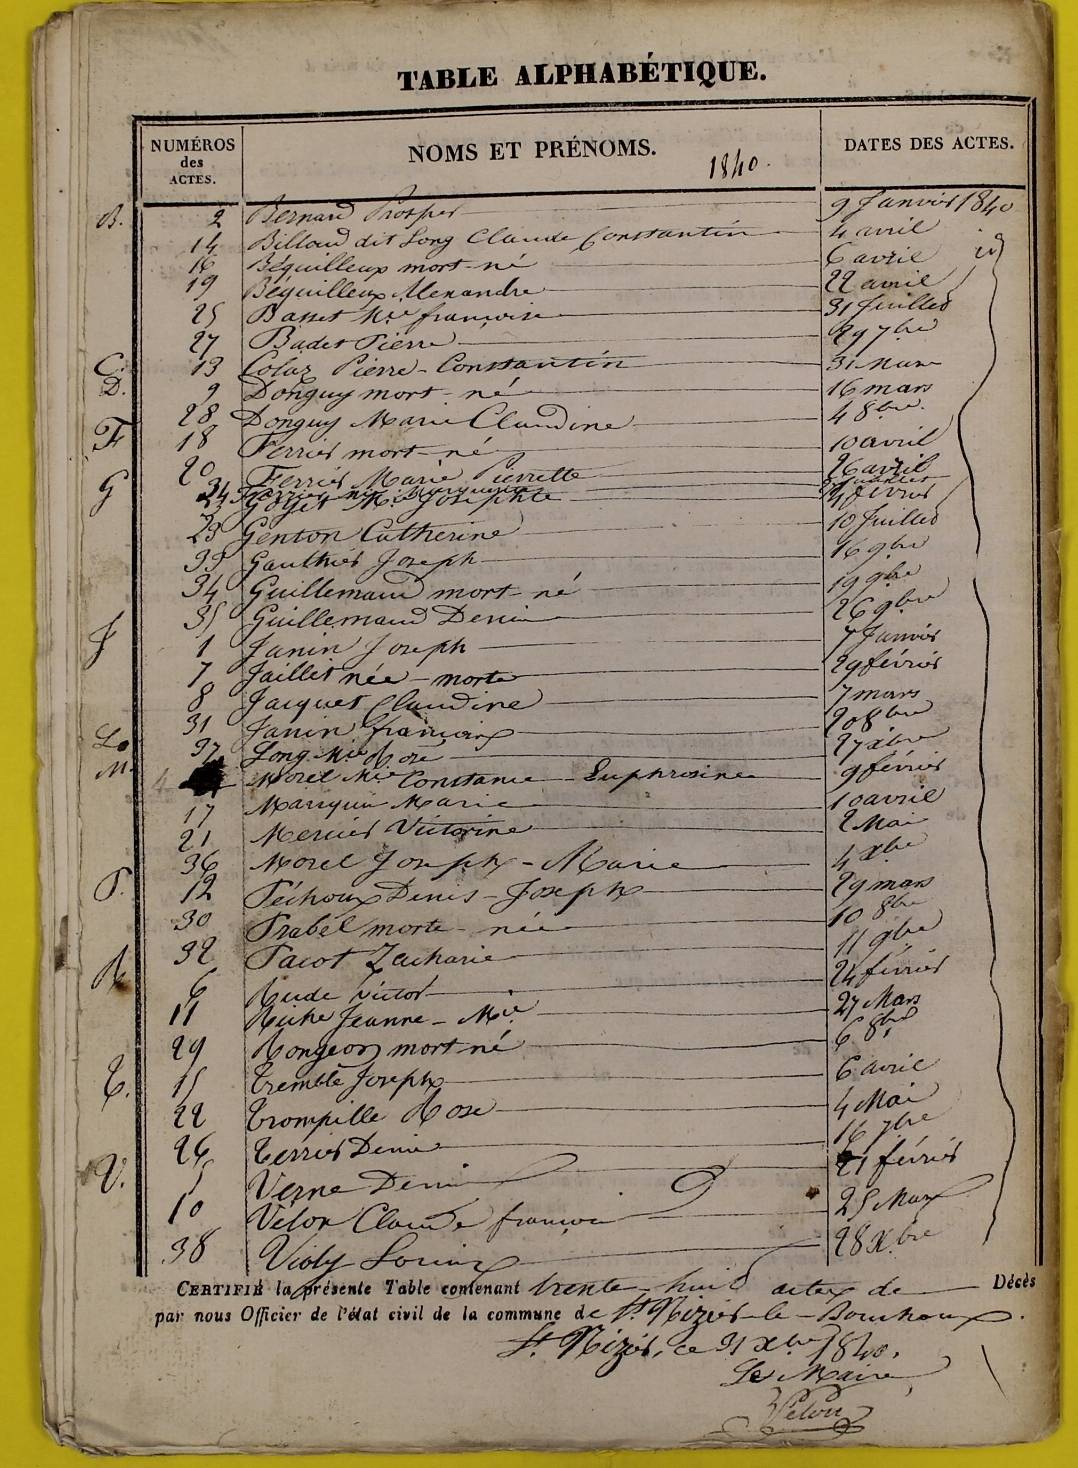 TABLE ALPHABÉTIQUE.
NUMÉROS des ACTES. NOMS ET PRÉNOMS. 1840. DATES DES ACTES.
B. 2 Bernard Prosper 9 Janvier 1840
14 Billoud dit Long Claude Constantin 4 avril id
16 Béguilleux mort-né 6 avril
19 Béguilleux Alexandre 22 avril
25 Basset Mie françoise 31 Juillet
27 Badet Pierre 29 7bre
C. 13 Colas Pierre-Constantin 31 Mars
D. 9 Donguy mort-né 16 mars
28 Donguy Marie Claudine 4 8bre
F 18 Ferrier mort-né 10 avril
20 Ferrier Marie Pierrette 26 avril
24 Ferrier Mie Marguerite
G 3 Goyet Mie Josephte 4 février
23 Genton Catherine 10 Juillet
33 Gauthier Joseph 16 9bre
34 Guillemaud mort-né 19 9bre
35 Guillemaud Denis 26 9bre
J 1 Janin Joseph 7 Janvier
7 Jaillet née-morte 29 février
8 Jacquet Claudine 7 mars
31 Janin françois 20 8bre
L. 37 Long Mie Rose 27 xbre
M. 4 Morel Mie Constance Euphrosine 9 février
17 Marguin Marie 10 avril
21 Mercier Victorine 2 Mai
36 Morel Joseph-Marie 4 xbre
P. 12 Péchoux Denis-Joseph 29 mars
30 Prabel morte-née 10 8bre
32 Pacot Zacharie 11 9bre
R 6 Rude Victor 24 février
11 Riche Jeanne-Mie 27 Mars
29 Rongeon mort-né 6 8bre
T. 15 Tremble Joseph 6 avril
22 Trompille Rose 4 Mai
26 Terrier Denis 16 7bre
V. 5 Verne Denis 21 février
10 Vélon Claude françois 25 Mars
38 Violy Louis 28 Xbre
CERTIFIÉ la présente Table contenant trente-huit actes de Décès
par nous Officier de l'état civil de la commune de St. Nizier-le-Bouchoux.
St. Nizier, ce 31 Xbre 1840.
Le Maire,
Velon